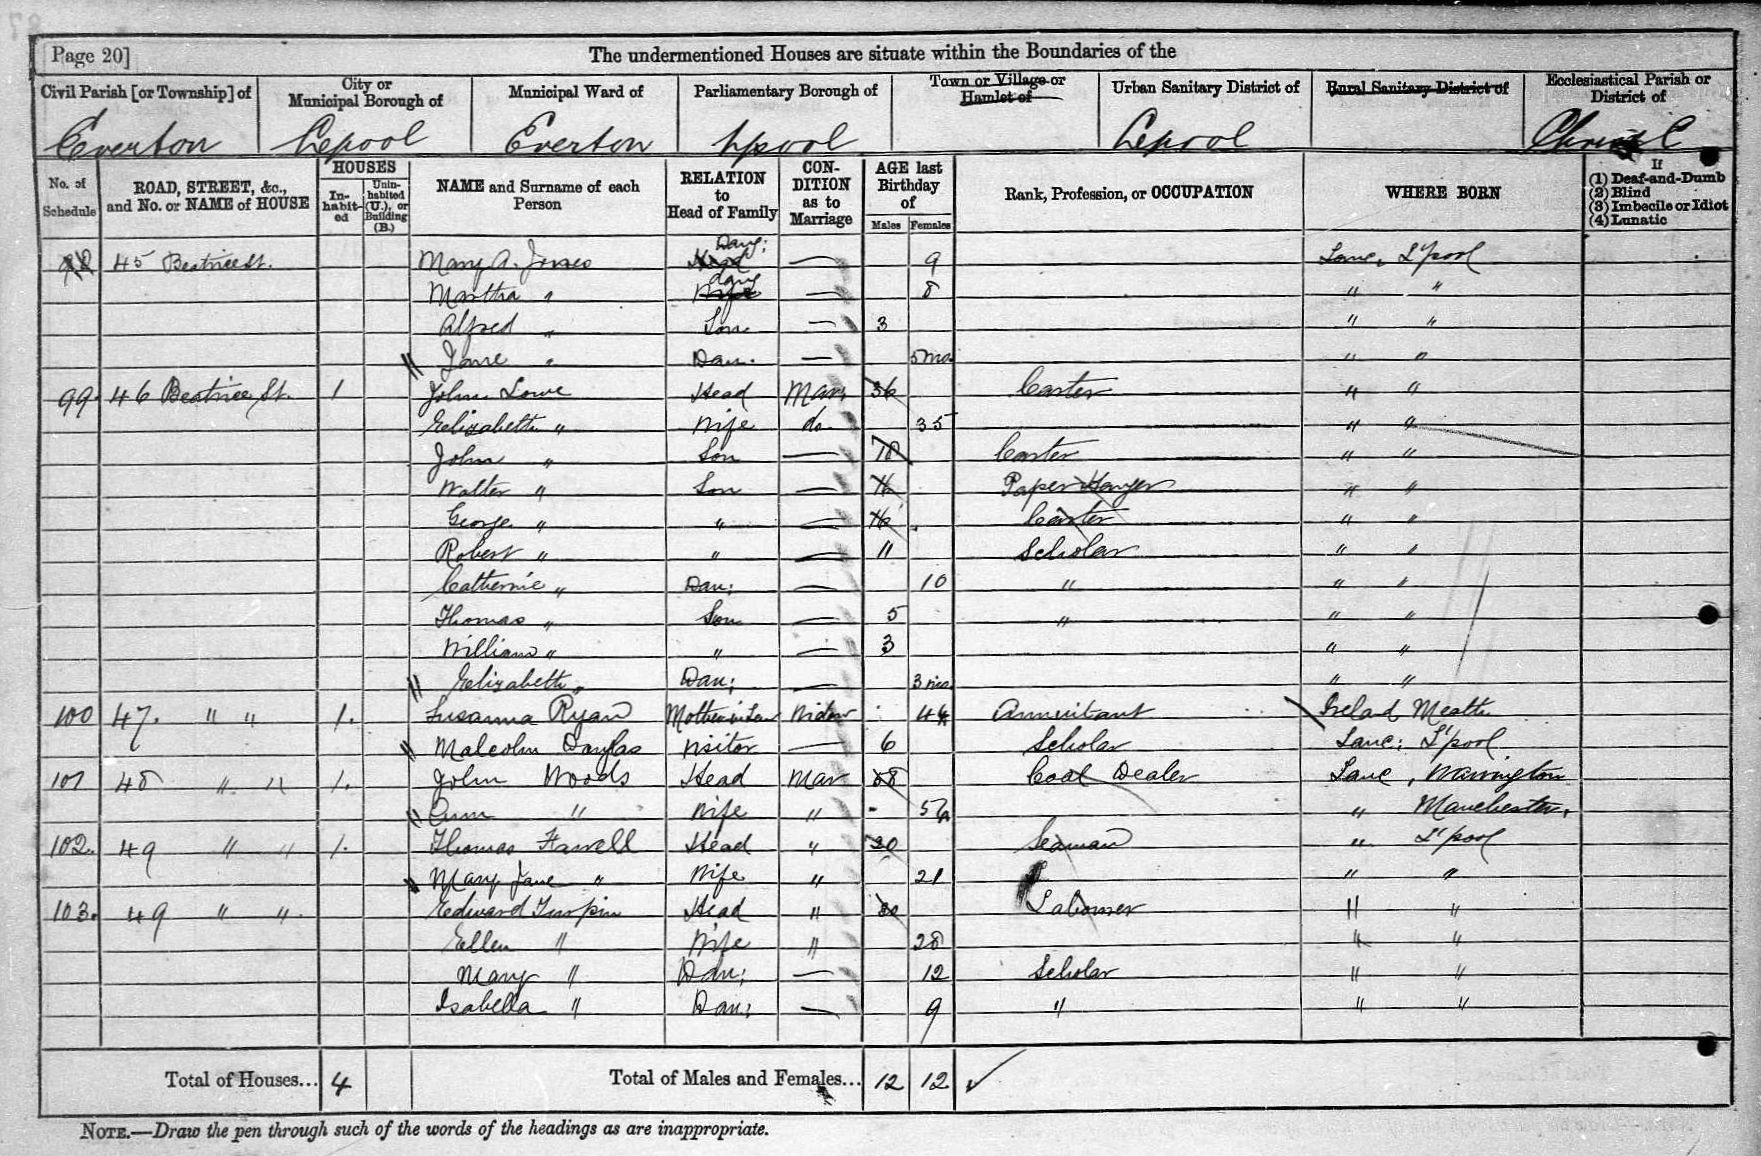 Page 20]
The undermentioned Houses are situate within the Boundaries of the
Civil Parish [or Township] of
City or Municipal Borough of
Municipal Ward of
Parliamentary Borough of
Town or Village or Hamlet of
Urban Sanitary District of
Rural Sanitary District of
Ecclesiastical Parish or District of
Everton Lpool Everton Lpool Lpool
No. of Schedule
ROAD, STREET, &c., and No. or NAME of HOUSE
HOUSES
Inhabited
Uninhabited (U.), or Building (B.)
NAME and Surname of each Person
RELATION to Head of Family
CONDITION as to Marriage
AGE last Birthday of
Males Females
Rank, Profession, or OCCUPATION
WHERE BORN
If
(1) Deaf-and-Dumb
(2) Blind
(3) Imbecile or Idiot
(4) Lunatic
45 Beatrice St. Mary A. Jones Daug: — 9 Lanc, L'pool
Martha " daug — 8 " "
Alfred " Son — 3 " "
Jane " Dau. — 5 mo " "
99. 46 Beatrice St. 1 John Lowe Head Mar. 36 Carter " "
Elizabeth " Wife do 35 " "
John " Son — 18 Carter " "
Walter " Son — Paper Hanger " "
George " " — 16 Carter " "
Robert " " — 11 Scholar " "
Catherine " Dau; — 10 " " "
Thomas " Son — 5 " " "
William " " — 3 " "
Elizabeth " Dau; — 3 mo " "
100 47. " " 1. Susanna Ryan Mother in Law Widow 44 Annuitant Ireland Meath
Malcolm Douglas Visitor — 6 Scholar Lanc: L'pool
101 48 " " 1. John Woods Head Mar 58 Coal Dealer Lanc, Warrington
Ann " Wife " 54 " Manchester,
102. 49 " " 1. Thomas Farrell Head " 30 Seaman " L'pool
Mary Jane " Wife " 21 " "
103. 49 " ". Edward Turpin Head " 30 Labourer " "
Ellen " Wife " 28 " "
Mary " Dau; — 12 Scholar " "
Isabella " Dau; — 9 " " "
Total of Houses... 4 Total of Males and Females... 12 12
NOTE.—Draw the pen through such of the words of the headings as are inappropriate.